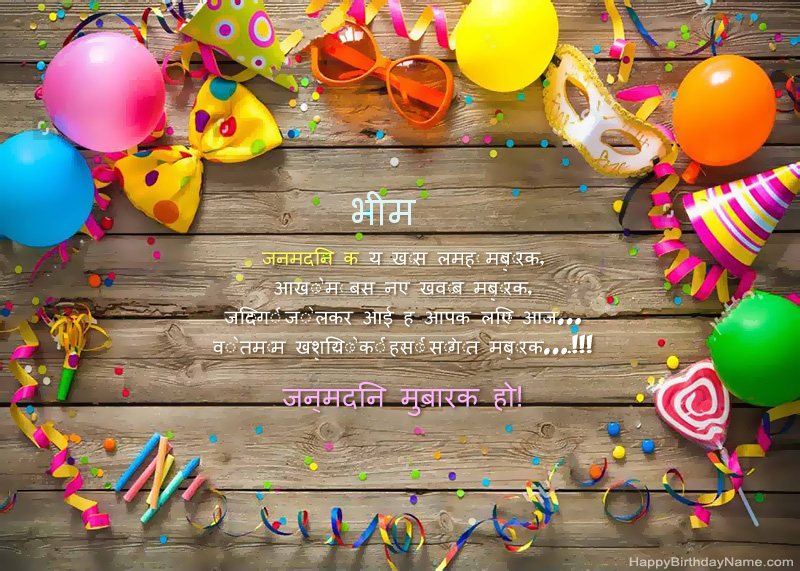 भीम
जनमदिन क य खास लमह मबारक,
आखों म बस नए खवाब मबारक,
जिंदगी जो लेकर आई ह आपक लिए आज...
वो तमाम खुशियों की हसीं सौगात मबारक....!!!
जन्मदिन मुबारक हो!
HappyBirthdayName.com